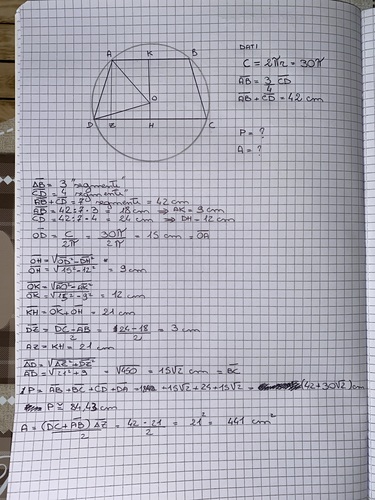 DATI
A K B
C = 2πr = 30π
AB = 3/4 CD
AB + CD = 42 cm
O
D Z H C
P = ?
A = ?
AB = 3 "segmenti"
CD = 4 "segmenti"
AB + CD = 7 segmenti = 42 cm
AB = 42 : 7 · 3 = 18 cm ⇒ AK = 9 cm
CD = 42 : 7 · 4 = 24 cm ⇒ DH = 12 cm
OD = C/2π = 30π/2π = 15 cm = OA
OH = √OD² - DH² =
OH = √15² - 12² = 9 cm
OK = √AO² - AK²
OK = √15² - 9² = 12 cm
KH = OK + OH = 21 cm
DZ = DC - AB/2 = 24 - 18/2 = 3 cm
AZ = KH = 21 cm
AD = √AZ² + DZ²
AD = √21² + 9 = √450 = 15√2 cm = BC
P = AB + BC + CD + DA = 18 + 15√2 + 24 + 15√2 = (42 + 30√2) cm
P ≅ 84,43 cm
A = (DC + AB) AZ/2 = 42 · 21/2 = 21² = 441 cm²